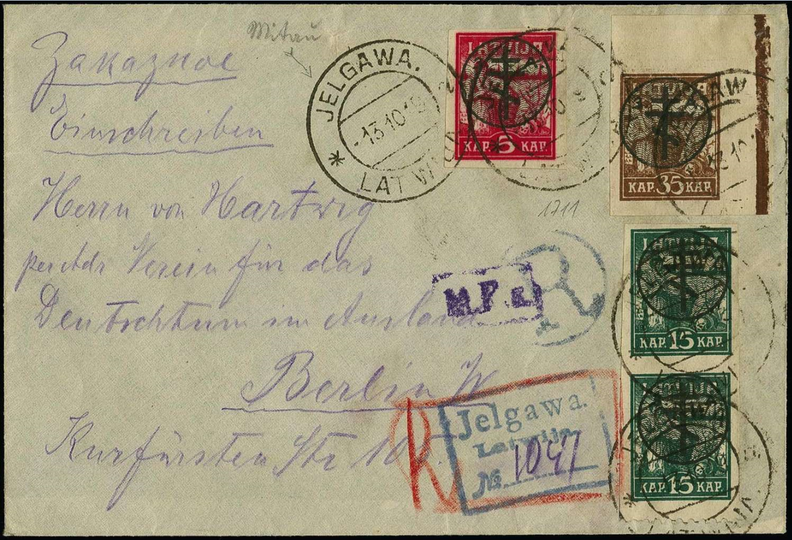 Mitau
Заказное
Einschreiben
Herrn von Hartwig
per Adr Verein für das
Deutschtum im Ausland
Berlin W
Kurfürsten Str 105
JELGAWA.
-1.3.10.19
* LATWIJA
LATVIJA
KAP. 5 KAP.
KAP. 35 KAP.
1711
LATVIJA
KAP. 15 KAP.
LATVIJA
KAP. 15 KAP.
M.P.k.
R
R
Jelgawa.
Latwija
№ 1047